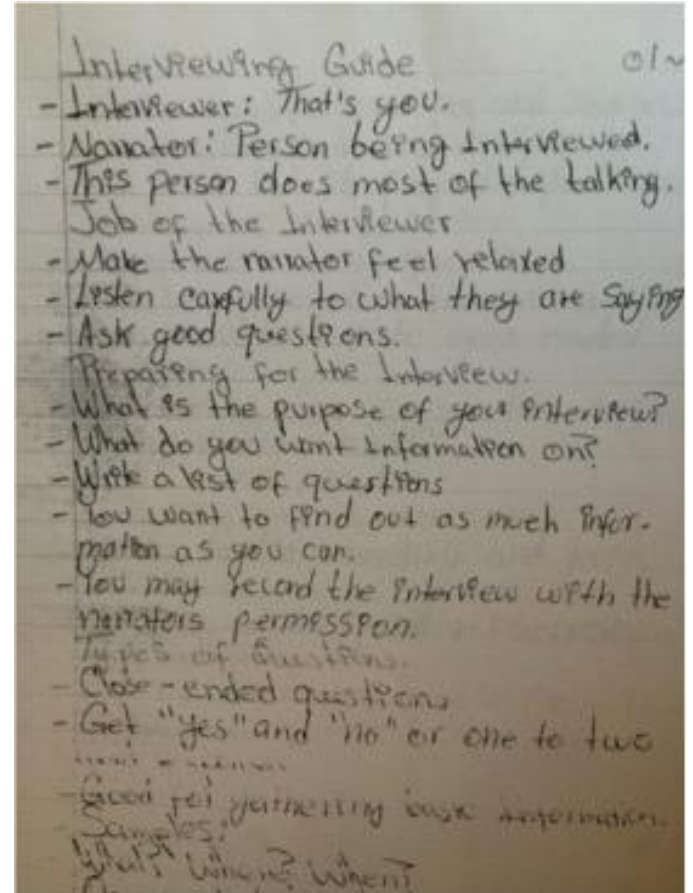 Interviewing Guide
- Interviewer: That's you.
- Narrator: Person being Interviewed.
- This person does most of the talking.
Job of the Interviewer
- Make the narrator feel relaxed
- Listen carefully to what they are saying
- Ask good questions.
Preparing for the Interview.
- What is the purpose of your interview?
- What do you want information on?
- Write a list of questions
- You want to find out as much infor-
mation as you can.
- You may record the interview with the
narrators permission.
Types of Questions.
- Close-ended questions
- Get "yes" and "no" or one to two
- Good for gathering basic information.
- Samples:
What? When?